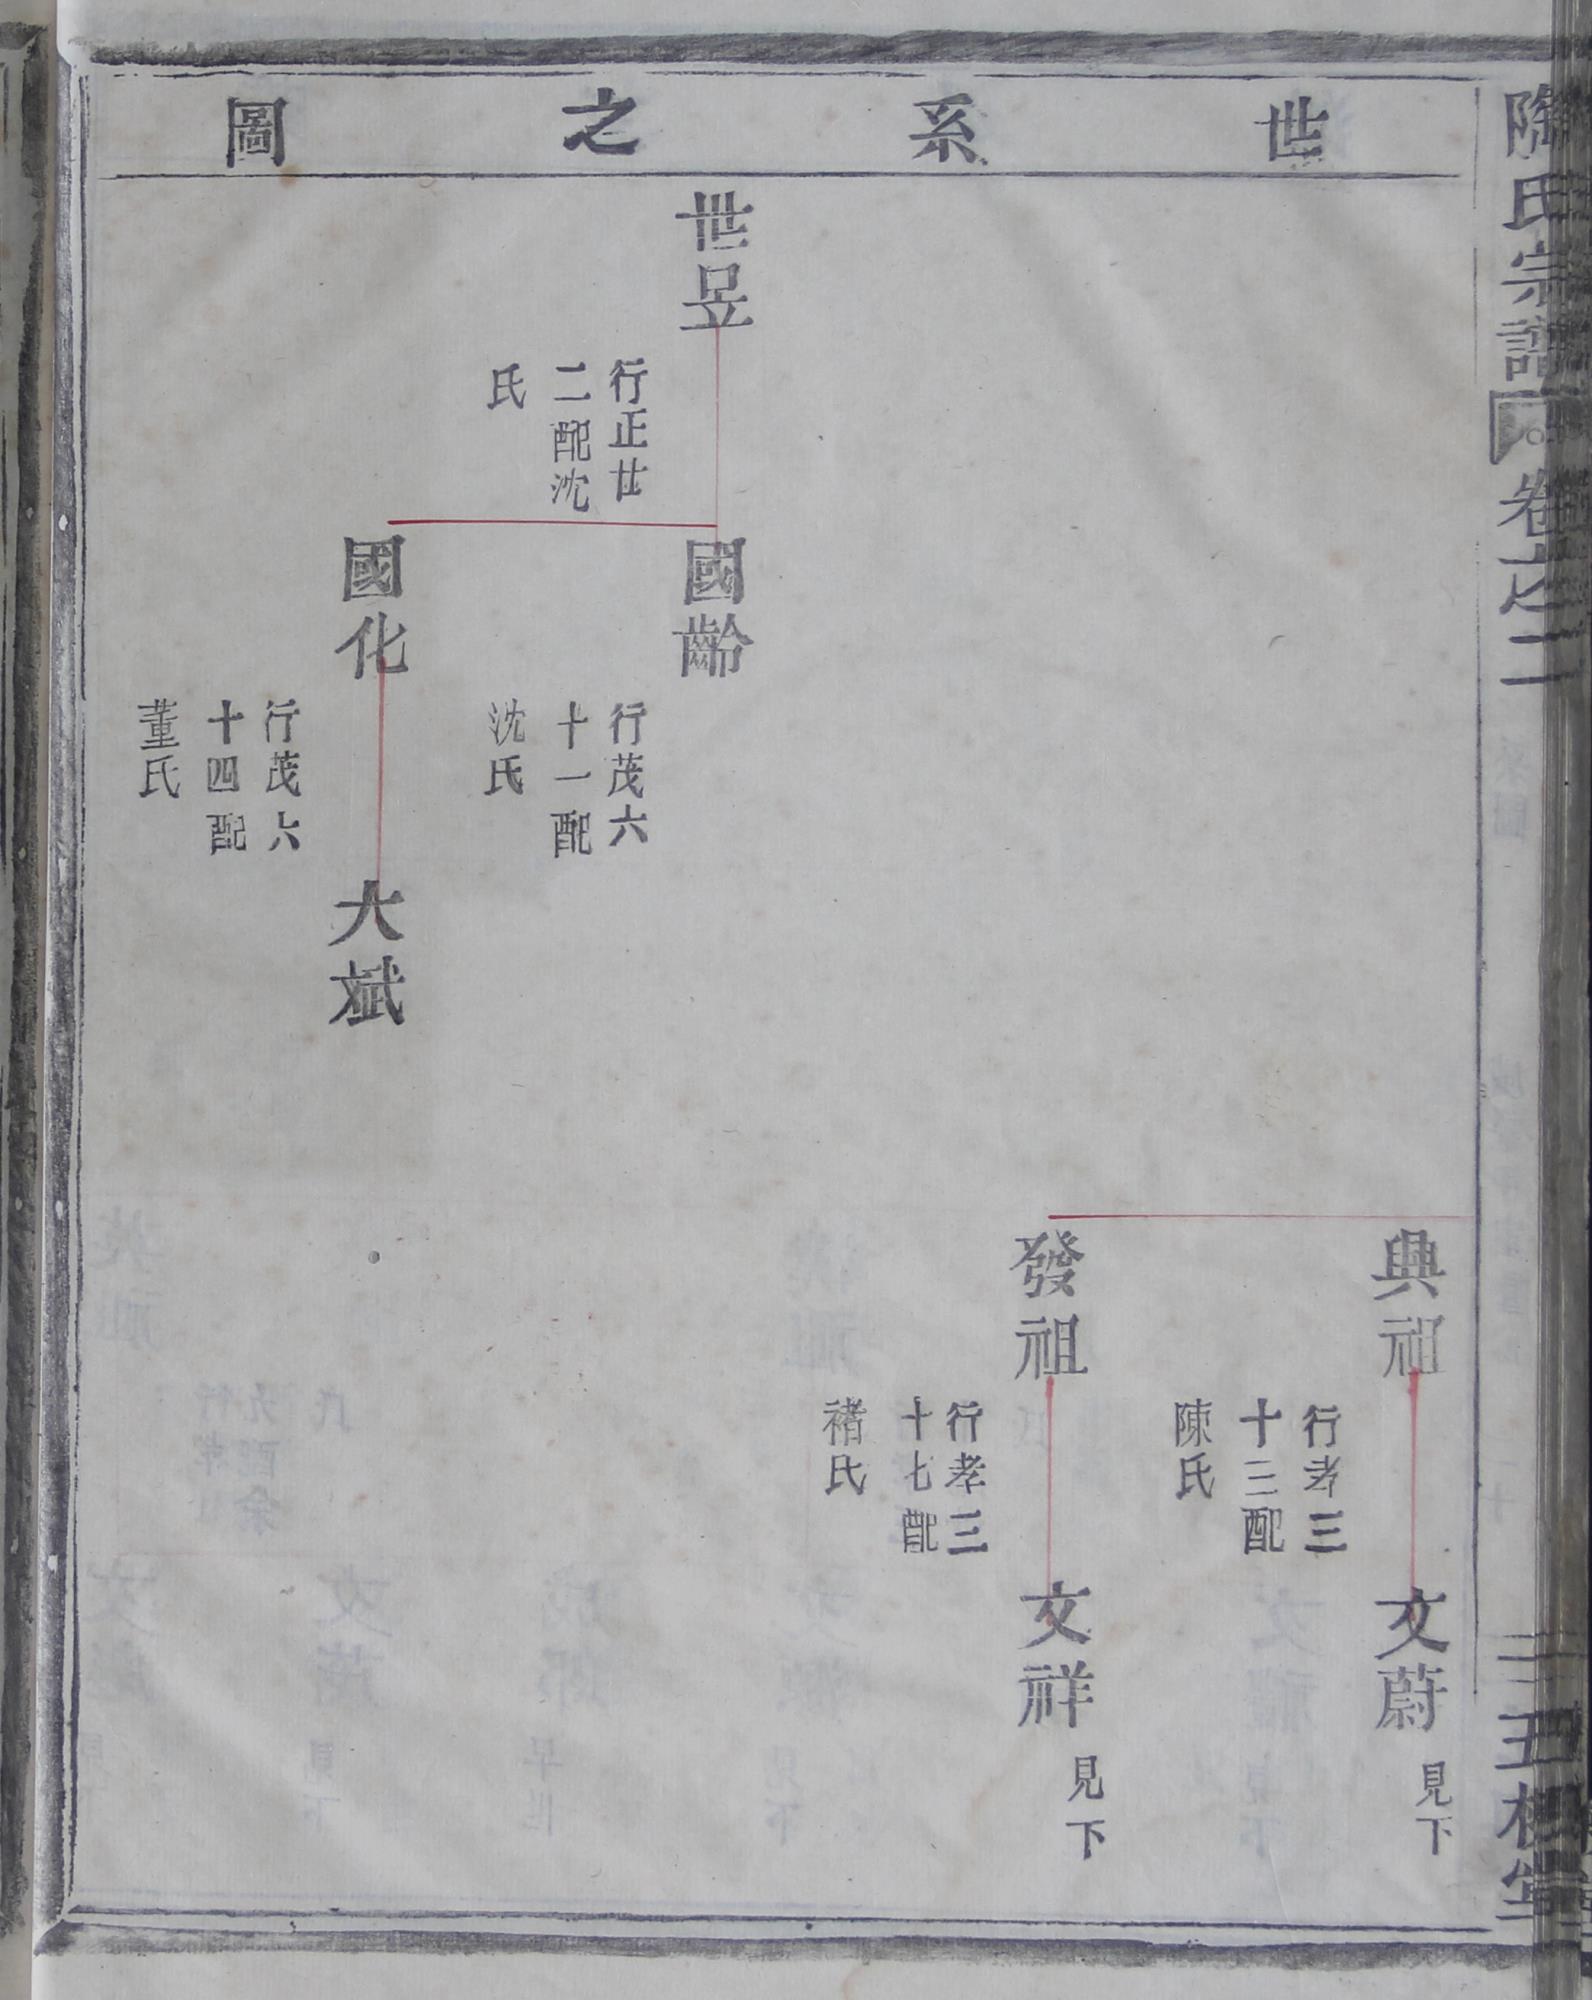 世系之圖
陶氏宗譜
卷之二
五柳堂
興祖
行孝三
十三配
陳氏
文蔚
見下
發祖
行孝三
十七配
褚氏
文祥
見下
世昱
行正廿
二配沈
氏
國齡
行茂六
十一配
沈氏
國化
行茂六
十四配
董氏
大斌